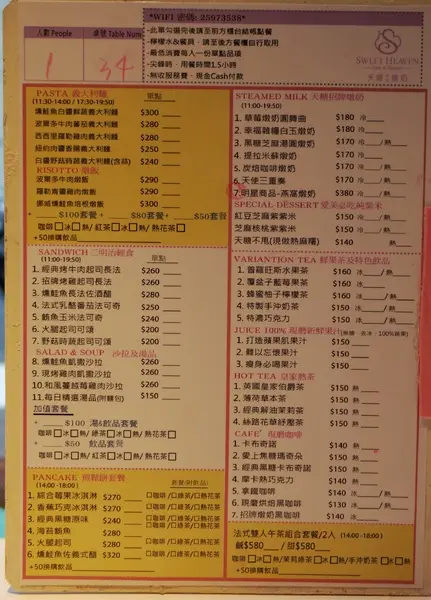 人數 People
桌號 Table Num
1
34
*WIFI 密碼: 25973538*
-此單勾選完後請至前方櫃台結帳點餐
-檸檬水&餐具，請至後方餐櫃自行取用
-最低消費每人一份單點品項
-尖峰時，用餐時間1.5小時
-無收服務費，現金Cash付款
SWEET HEAVEN
PASTA 義大利麵
(11:30-14:00 / 17:30-19:50)
單點
燻鮭魚白醬鮮蔬義大利麵 $300
波爾多牛肉蕃茄義大利麵 $280
西西里羅勒雞肉義大利麵 $280
紐約肉醬香腸義大利麵 $250
白醬野菇時蔬義大利麵 $240
RISOTTO 燉飯
波爾多牛肉燉飯 $290
羅勒青醬雞肉燉飯 $290
挪威燻鮭魚培根燉飯 $300
$100套餐+ $80套餐+ $50套餐
咖啡□冰□熱/紅茶□冰□熱/熱花茶□
+50換購飲品
SANDWICH 三明治輕食
(11:00-19:50)
單點
1. 經典烤牛肉起司長法 $260
2. 招牌烤雞起司長法 $260
3. 燻鮭魚長法佐酒醋 $280
4. 法式乳酪蕃茄法可奇 $250
5. 鮪魚玉米法可奇 $240
6. 火腿起司可頌 $200
7. 野菇時蔬起司可頌 $200
SALAD & SOUP 沙拉及湯品
8. 燻鮭魚凱撒沙拉 $260
9. 現烤雞肉凱撒沙拉 $260
10. 和風蔓越莓雞肉沙拉 $260
11. 每日精選湯品(附麵包) $150
加值套餐
+ $100 湯&飲品套餐
咖啡□冰□熱/綠茶□冰□熱/熱花茶□
+ $50 飲品套餐
咖啡□冰□熱/紅茶□冰□熱/熱花茶□
+50換購飲品
PANCAKE 煎鬆餅套餐
(14:00-18:00)
套餐(附飲品)
1. 綜合莓果冰淇淋 $270 □咖啡/□綠茶/□熱花茶
2. 香蕉巧克冰淇淋 $270 □咖啡/□綠茶/□熱花茶
3. 經典黑糖原味 $240 □咖啡/□綠茶/□熱花茶
4. 海苔鮪魚 $280 □咖啡/□綠茶/□熱花茶
5. 火腿起司 $280 □咖啡/□綠茶/□熱花茶
6. 燻鮭魚佐義式醋 $320 □咖啡/□綠茶/□熱花茶
+50換購飲品
STEAMED MILK 天糖招牌燉奶
(11:00-19:50)
1. 草莓燉奶圓舞曲 $180 冷
2. 幸福雜糧白玉燉奶 $180 冷
3. 黑糖芝麻湯圓燉奶 $170 冷 /熱
4. 提拉米蘇燉奶 $170 冷
5. 炭焙咖啡燉奶 $170 冷
6. 天使三重奏 $170 冷 /熱
7. 明星商品-燕窩燉奶 $380 冷 /熱
SPECIAL DESSERT 愛美必吃純紫米
紅豆芝麻紫米粥 $150 冷 /熱
芝麻核桃紫米粥 $150 冷 /熱
天糖不甩(現做熱麻糬) $140 熱
VARIANTION TEA 鮮果茶及特色飲品
1. 普羅旺斯水果茶 $160 冰 /熱
2. 覆盆子藍莓果茶 $160 冰
3. 蜂蜜柚子檸檬茶 $160 冰 /熱
4. 特製手沖奶茶 $150 冰 /熱
5. 特濃巧克力 $150 冰 /熱
JUICE 100% 現磨新鮮果汁(無糖．去冰．100%蔬果)
1. 打造蘋果肌果汁 $150
2. 難以忘懷果汁 $150
3. 瘦身必喝果汁 $150
HOT TEA 皇家熱茶
1. 英國皇家伯爵茶 $150 熱
2. 薄荷草本茶 $150 熱
3. 經典解油茉莉茶 $150 熱
4. 絲路花草紓壓茶 $150 熱
CAFE' 現磨咖啡
1. 卡布奇諾 $140 熱
2. 愛上焦糖瑪奇朵 $150 熱
3. 經典黑糖卡布奇諾 $150 熱
4. 摩卡熱巧克力 $140 熱
5. 拿鐵咖啡 $140 冰 /熱
6. 現磨烘焙黑咖啡 $130 冰 /熱
7. 招牌燉奶黑咖啡 $140 冰
法式雙人午茶組合套餐/2人 (14:00-18:00)
鹹$580 / 甜$580
咖啡□冰□熱/茉莉綠茶□冰□熱/手沖奶茶□冰□熱
+50換購飲品